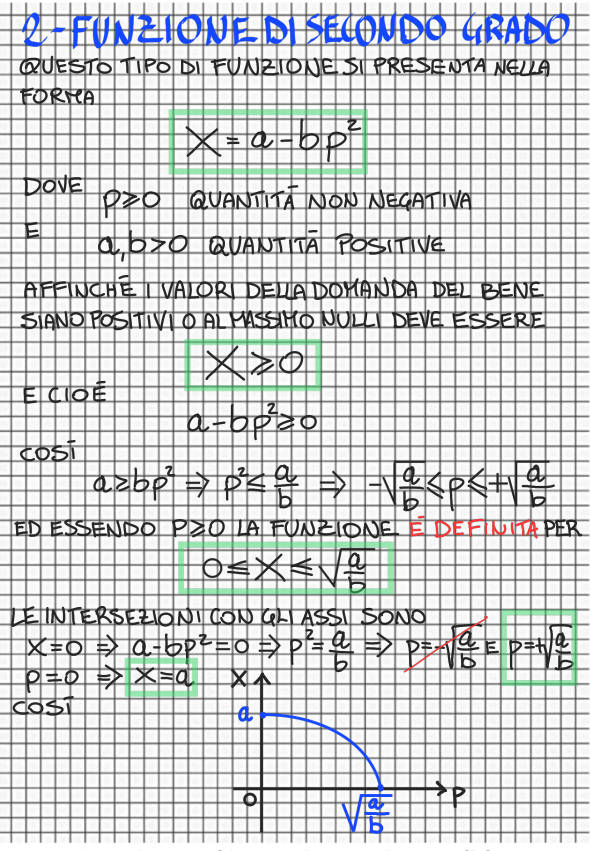 2-FUNZIONE DI SECONDO GRADO
QUESTO TIPO DI FUNZIONE SI PRESENTA NELLA
FORMA
X = a - bp²
DOVE p⩾0 QUANTITÀ NON NEGATIVA
E a,b>0 QUANTITÀ POSITIVE
AFFINCHÈ I VALORI DELLA DOMANDA DEL BENE
SIANO POSITIVI O AL MASSIMO NULLI DEVE ESSERE
X⩾0
E CIOÈ
a-bp²⩾0
COSÌ
a⩾bp² ⇒ p²⩽a/b ⇒ -√(a/b)⩽p⩽+√(a/b)
ED ESSENDO P⩾0 LA FUNZIONE È DEFINITA PER
0⩽X⩽√(a/b)
LE INTERSEZIONI CON GLI ASSI SONO
X=0 ⇒ a-bp²=0 ⇒ p²=a/b ⇒ p=-√(a/b) E p=+√(a/b)
p=0 ⇒ X=a
COSÌ
X
a
0
p
√(a/b)